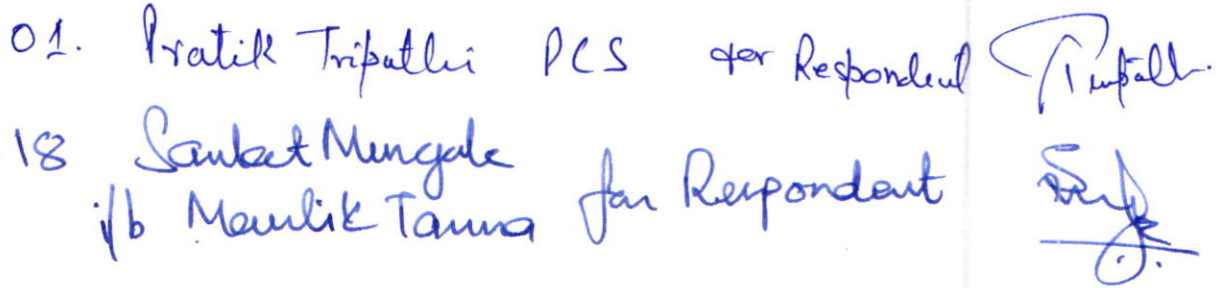 01. Pratik Tripathi PCS for Respondent Tripathi
18 Sanket Mungale
i/b Maulik Tanna for Respondent